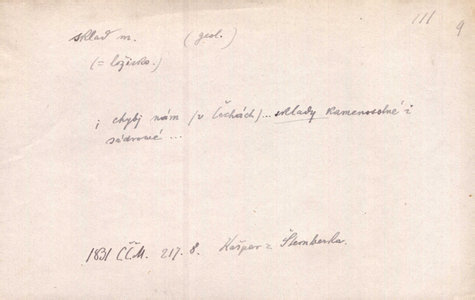 111 9
sklad m. (geol.)
(= ložisko.)
; chybj nám (v Čechách)... sklady kamenosolné i
sádrowé ...
1831 ČČM. 217. 8. Kašpar z Šternberka.